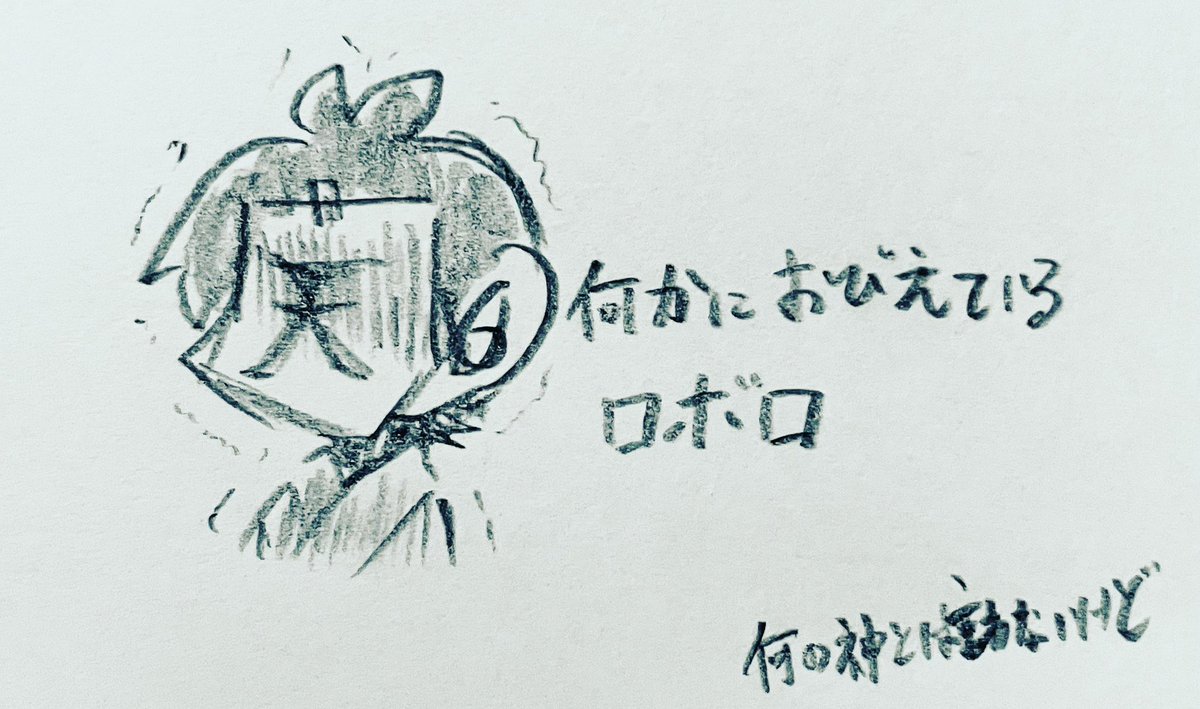 天
何かにおびえている
ロボロ
何の神とは ないけど